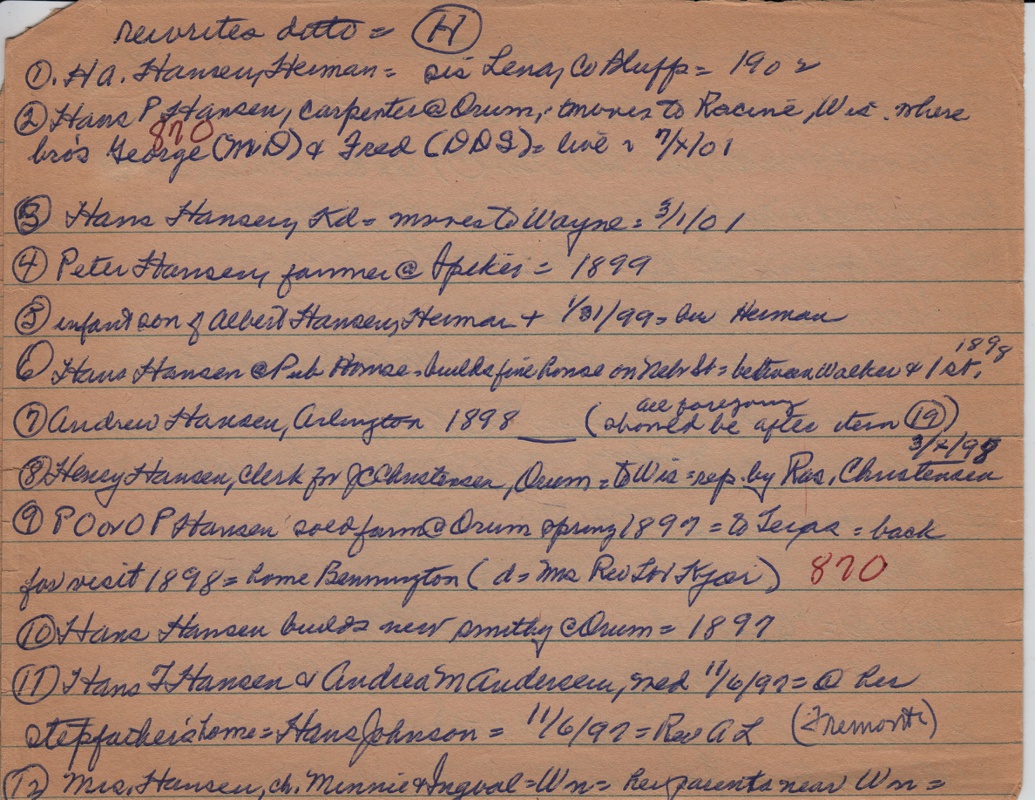 rewrites ditto = (H)
①. H A. Hansen, Herman = sis Lena, Co Bluff = 1902
② Hans P Hansen, carpenter @ Orum, moves to Racine, Wis. where
870
bro's George (MD) & Fred (DDS) = live 7/4/01
③ Hans Hansen, Kd = moves to Wayne = 3/1/01
④ Peter Hansen, farmer @ Spiker = 1899
⑤ infant son of Albert Hansen, Herman + 1/31/99 = bu Herman
1898
⑥ Hans Hansen @ Pub House = builds fine house on Nebr St = between Walker & 1st.
all foregoing
⑦ Andrew Hansen, Arlington 1898 (should be after item ⑲)
3/4/98
⑧ Henry Hansen, clerk for JC Christensen, Orum = to Wis = rep. by Ras. Christensen
⑨ P O or O P Hansen sold farm @ Orum spring 1897 = to Texas = back
for visit 1898 = home Bennington (d = Mrs Rev Kjar) 870
⑩ Hans Hansen builds new smithy @ Orum = 1897
⑪ Hans Hansen & Andrea M Andersen, wed 11/6/97 = @ her
stepfather's home = Hans Johnson = 11/6/97 = Rev A L (Fremont)
⑫ Mrs. Hansen, ch. Minnie & Ingval = Wn = her parents near Wn =